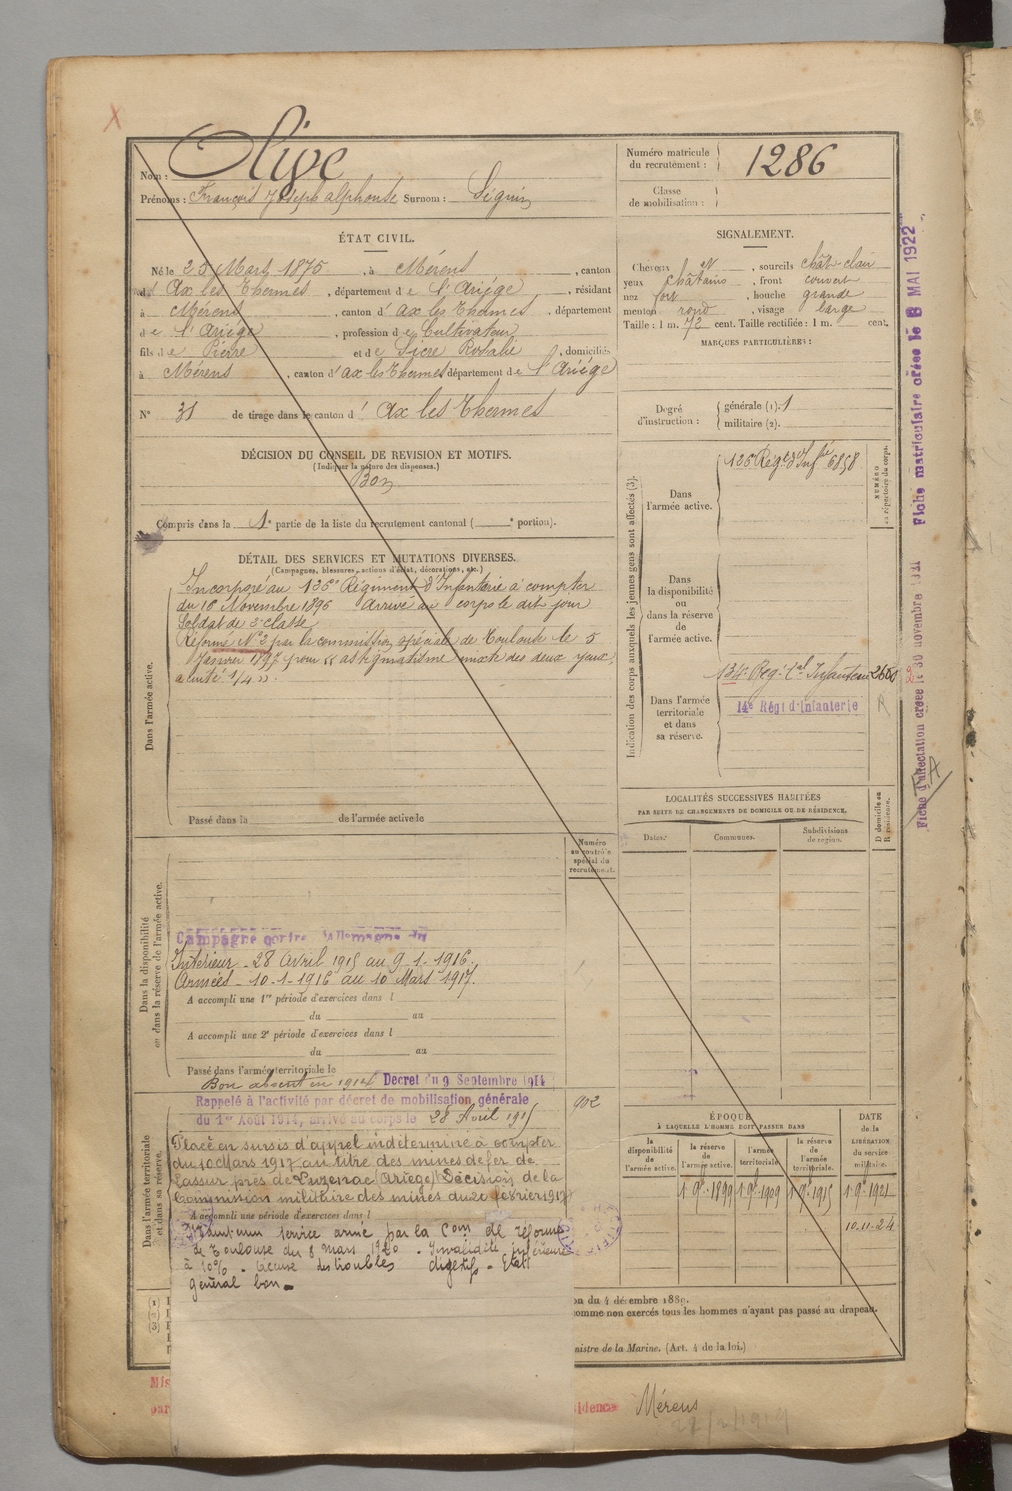 X
Nom : Olive
Prénoms : François Joseph alphonse Surnom : Séguin
Numéro matricule du recrutement : 1286
Classe de mobilisation :
ÉTAT CIVIL.
Né le 25 Mars 1875, à Mérens, canton
d' Ax les Thermes, département de l'Ariége, résidant
à Mérens, canton d' ax les Thermes, département
de l'Ariége, profession de Cultivateur
fils de Pierre et de Sicre Rosalie, domiciliés
à Mérens, canton d' ax les Thermes département de l'Ariége
N° 31 de tirage dans le canton d' Ax les Thermes
SIGNALEMENT.
Cheveux N, sourcils chât-clair
yeux châtains, front couvert
nez fort, bouche grande
menton rond, visage large
Taille : 1 m. 72 cent. Taille rectifiée : 1 m. cent.
MARQUES PARTICULIÈRES :
Degré d'instruction : générale (1). 1
militaire (2).
DÉCISION DU CONSEIL DE REVISION ET MOTIFS.
(Indiquer la nature des dispenses.)
Bon
Compris dans la 1e partie de la liste du recrutement cantonal ( e portion).
DÉTAIL DES SERVICES ET MUTATIONS DIVERSES.
(Campagnes, blessures, actions d'éclat, décorations, etc.)
Dans l'armée active.
Incorporé au 126e Régiment d'Infanterie à compter
du 16 Novembre 1896 Arrivé au corps le dit jour
Soldat de 2e classe
Réformé N° 2 par la commission spéciale de Toulouse le 5
Janvier 1897 pour « astigmatisme mixte des deux yeux,
acuité 1/4 ».
Passé dans la de l'armée active le
Indication des corps auxquels les jeunes gens sont affectés (3).
NUMÉRO au répertoire du corps.
Dans l'armée active.
126 Régt d'Infie 6858
Dans la disponibilité ou dans la réserve de l'armée active.
Dans l'armée territoriale et dans sa réserve.
134 Reg. tal Infanterie 2660
14e Régt d'Infanterie
R
LOCALITÉS SUCCESSIVES HABITÉES
PAR SUITE DE CHANGEMENTS DE DOMICILE OU DE RÉSIDENCE.
Dates.
Communes.
Subdivisions de région.
D domicile ou R résidence.
Dans la disponibilité ou dans la réserve de l'armée active.
Numéro au contrôle spécial du recrutement.
Campagne contre l'Allemagne du
Intérieur - 28 Avril 1915 au 9-1-1916.
Armées - 10-1-1916 au 10 Mars 1917.
A accompli une 1re période d'exercices dans l
du au
A accompli une 2e période d'exercices dans l
du au
Passé dans l'armée territoriale le
Bon absent en 1914 Décret du 9 Septembre 1914
Dans l'armée territoriale et dans sa réserve.
Rappelé à l'activité par décret de mobilisation générale
du 1er Août 1914, arrivé au corps le 28 Avril 1915
902
Placé en sursis d'appel indéterminé à compter
du 10 Mars 1917 au titre des mines de fer de
Lassur près de Luzenac (Ariège) Décision de la
Commission militaire des mines du 20 février 1917
A accompli une période d'exercices dans l
Maintenu service armé par la Com. de réforme
de Toulouse du 8 mars 1920. Invalidité inférieure
à 10%. Accuse des troubles digestifs - Etat
général bon.
ÉPOQUE
À LAQUELLE L'HOMME DOIT PASSER DANS
la disponibilité de l'armée active.
la réserve de l'armée active.
l'armée territoriale.
la réserve de l'armée territoriale.
DATE de la LIBÉRATION du service militaire.
1 9e 1899
1 9e 1909
1 9e 1915
1 9e 1921
10.11.24
(1)
(2)
(3)
on du 4 décembre 1889.
comme non exercés tous les hommes n'ayant pas passé au drapeau.
nistre de la Marine. (Art. 4 de la loi.)
Mis
par
sidence Mérens
Fiche matriculaire créée le 8 MAI 1922
Fiche d'affectation créée le 30 novembre